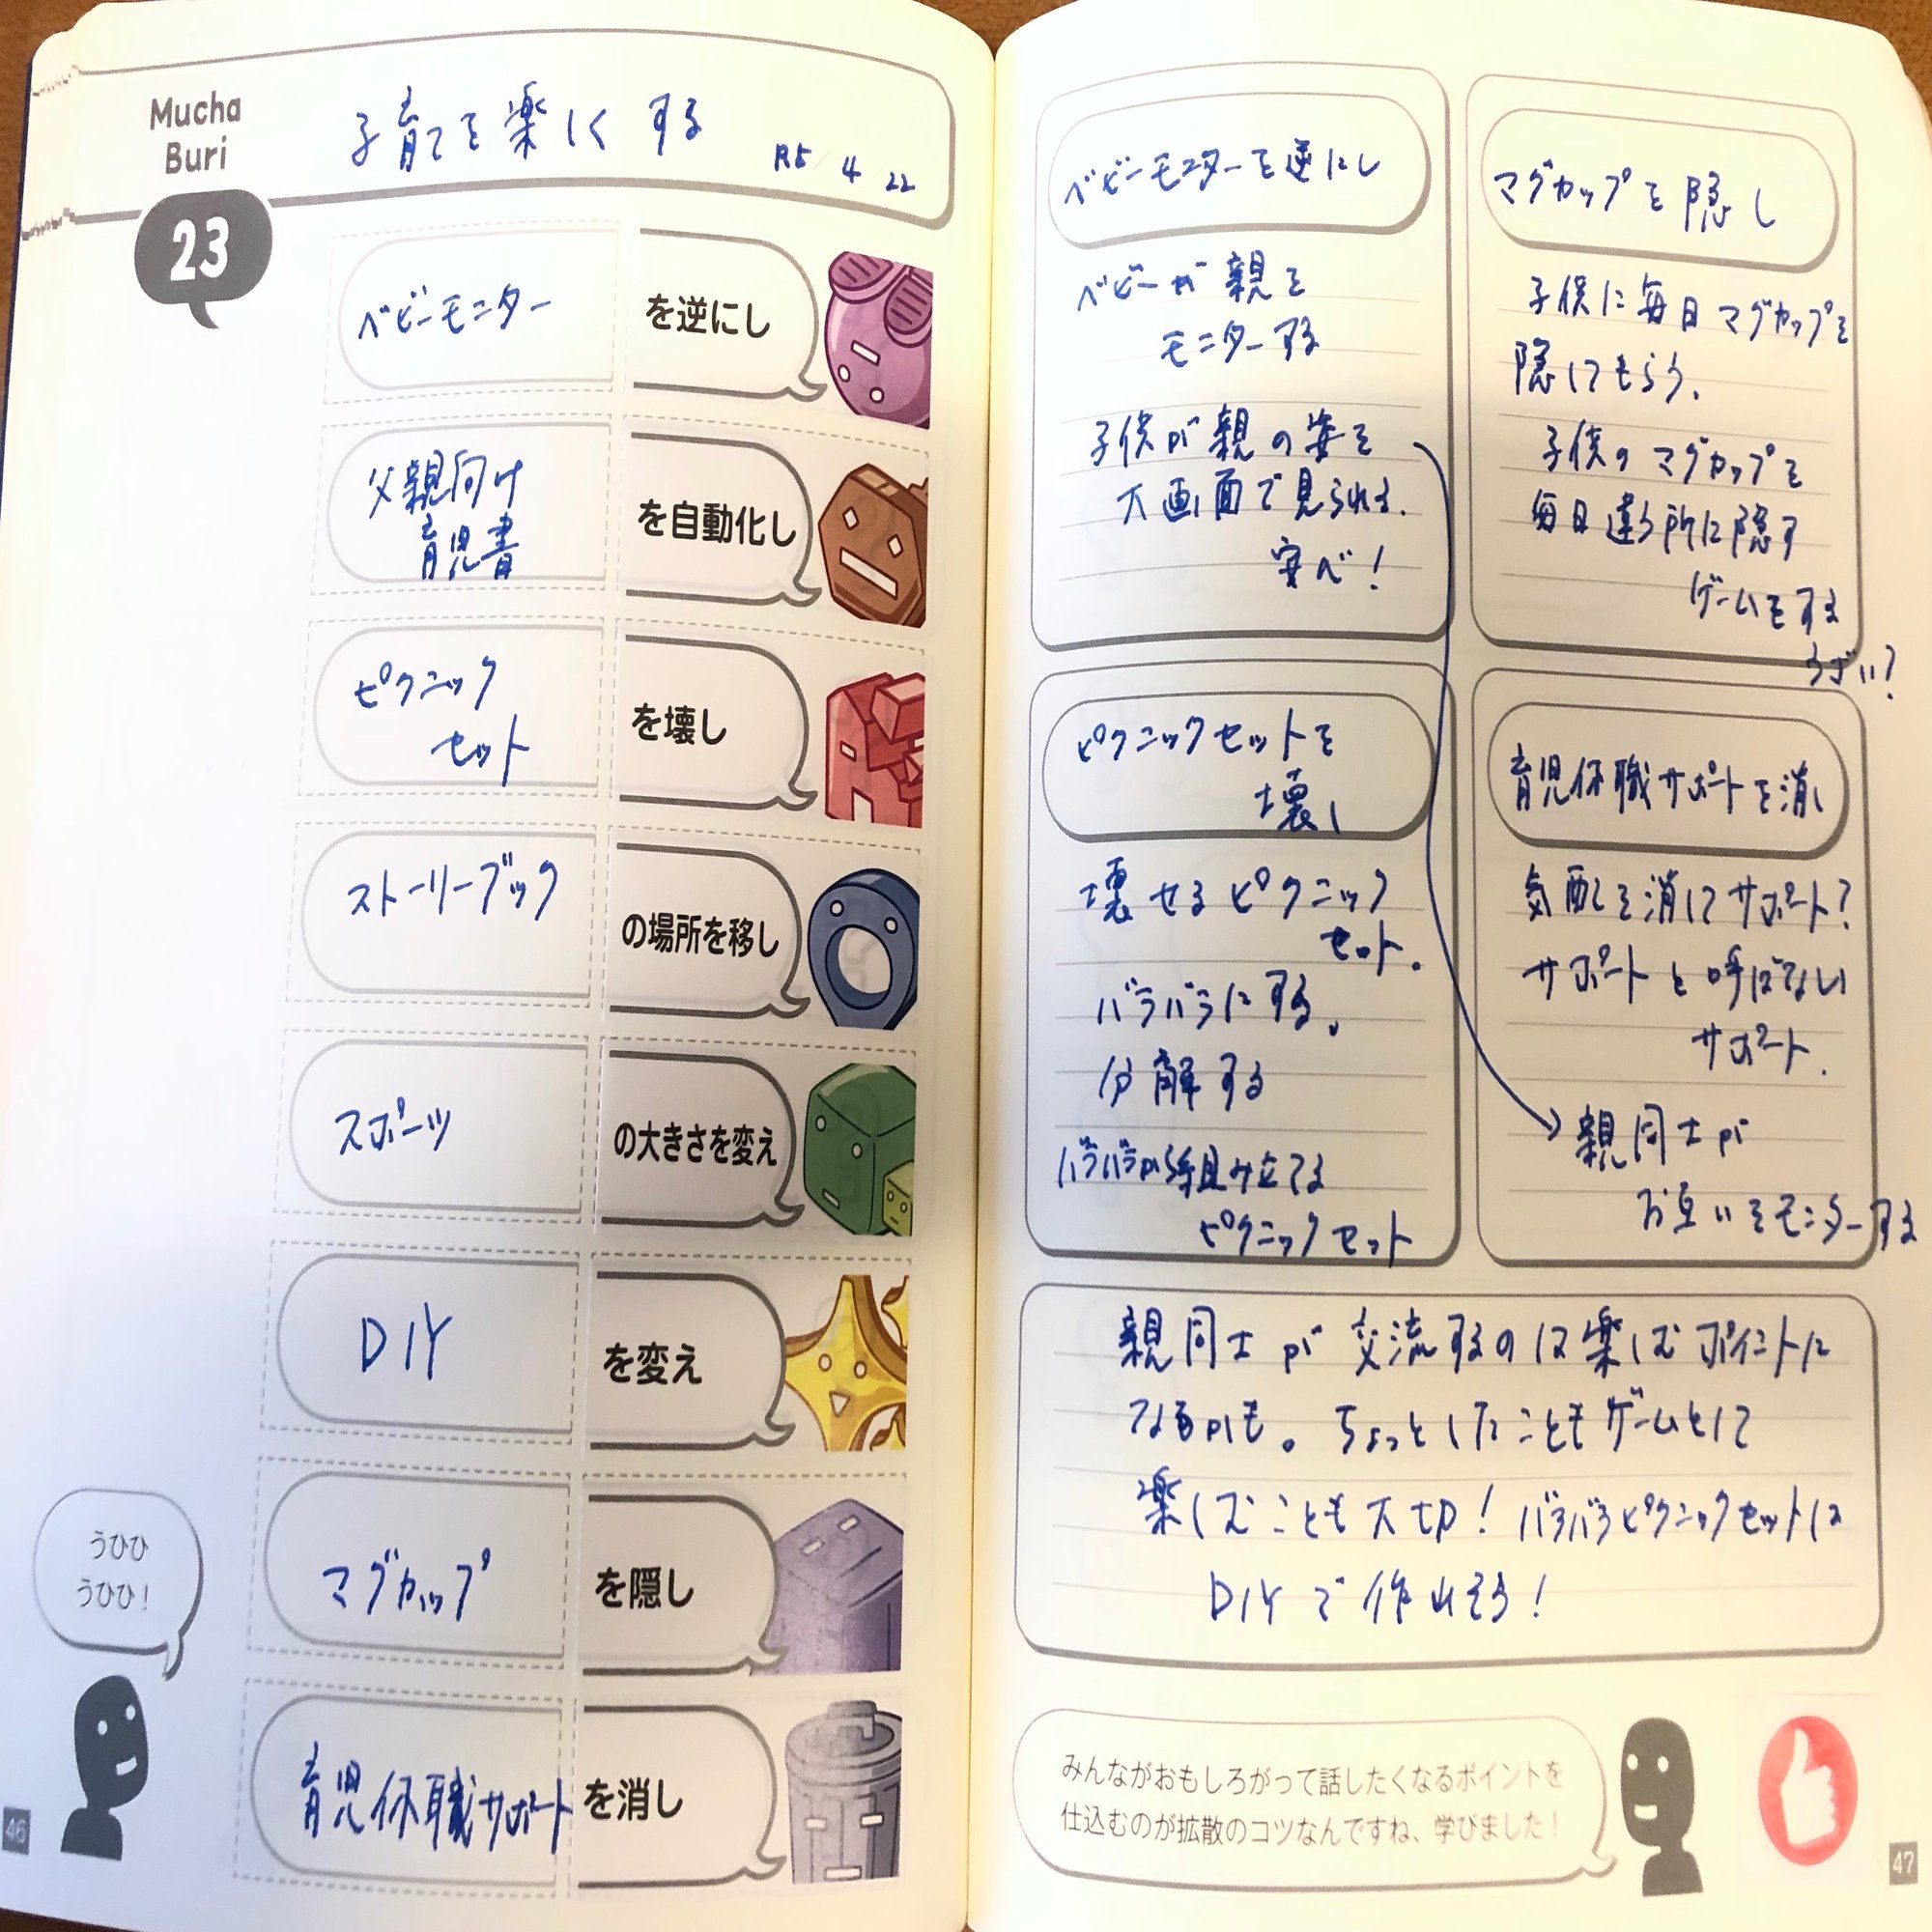 Mucha
Buri
23
子育てを楽しくする
R5/4/22
ベビーモニター
を逆にし
父親向け
育児書
を自動化し
ピクニック
セット
を壊し
ストーリーブック
の場所を移し
スポーツ
の大きさを変え
DIY
を変え
マグカップ
を隠し
育児休職サポート
を消し
うひひ
うひひ!
46
ベビーモニターを逆にし
ベビーが親を
モニターする
子供が親の姿を
大画面で見られる.
安ベ!
マグカップを隠し
子供に毎日マグカップを
隠してもらう.
子供のマグカップを
毎日違う所に隠す
ゲームをする
うざい?
ピクニックセットを
壊し
壊せるピクニック
セット。
バラバラにする。
分解する
バラバラから組み立てる
ピクニックセット
育児休職サポートを消し
気配を消してサポート?
サポートと呼ばない
サポート.
親同士が
お互いをモニターする
親同士が交流するのは楽しむポイントに
なるかも。ちょっとしたこともゲームとして
楽しむことも大切!バラバラピクニックセットは
DIYで作れそう!
みんながおもしろがって話したくなるポイントを
仕込むのが拡散のコツなんですね、学びました!
47